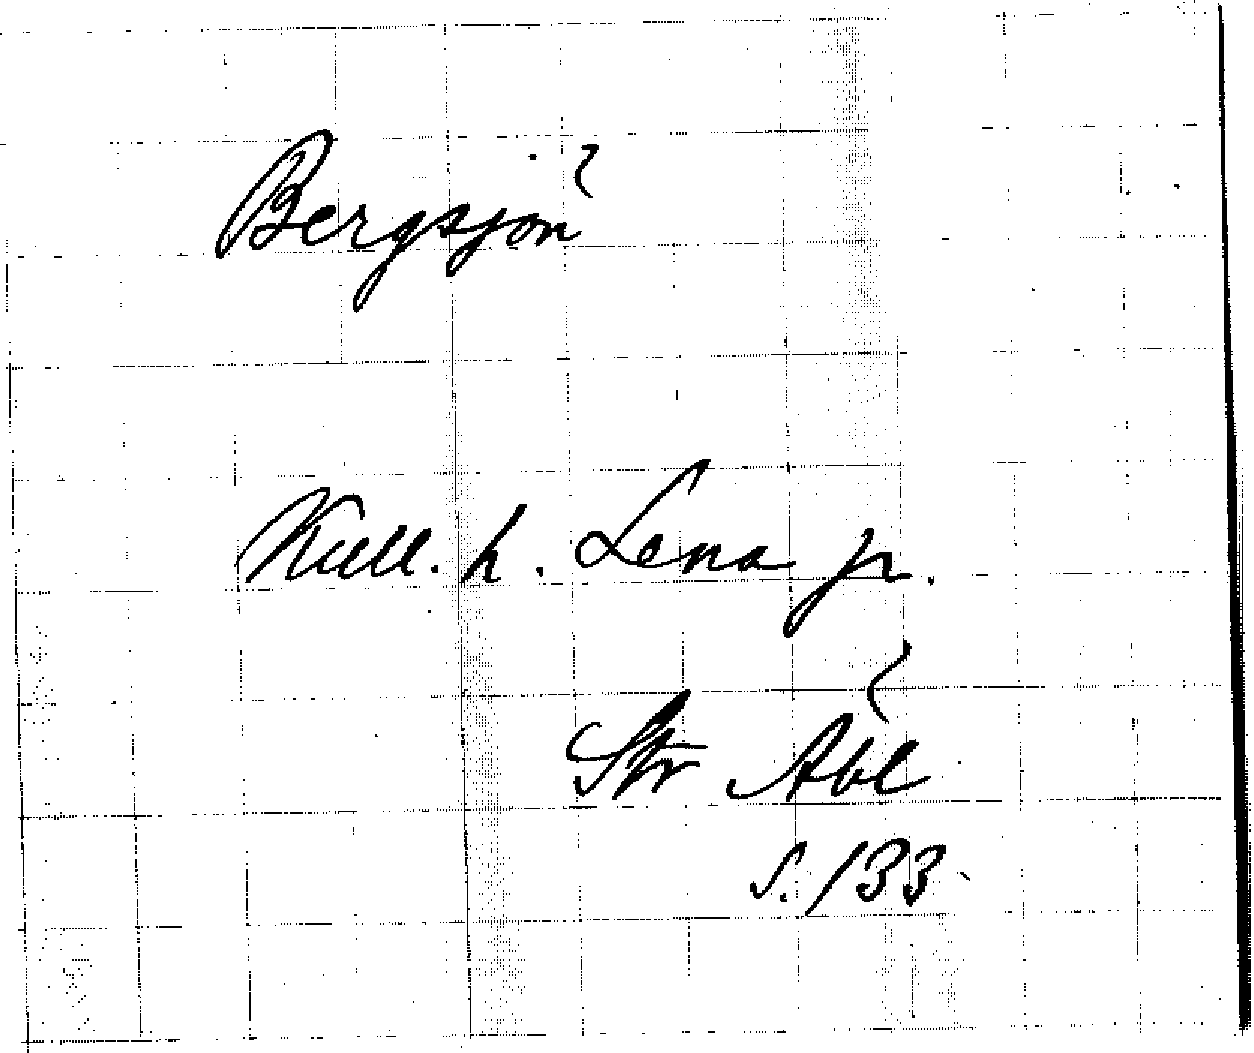 Bergsjön
Kull. h. Lena jr.
Str Åbl
s. 133